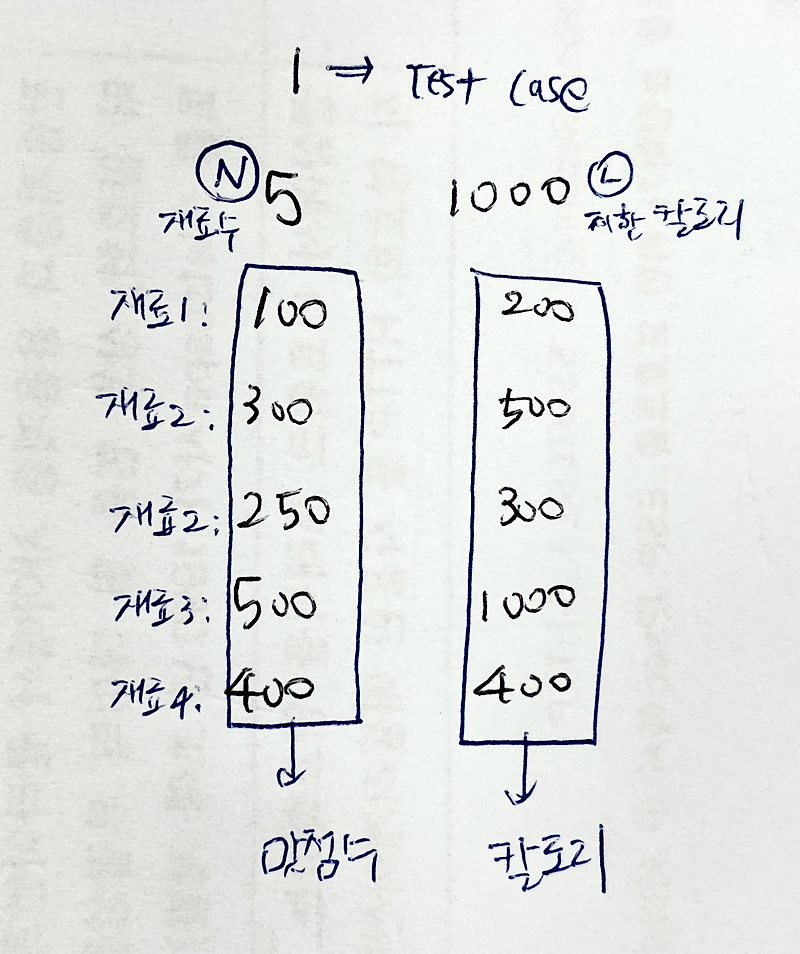 1 ⇒ Test Case
Ⓝ 5 1000 Ⓛ
재료수 제한 칼로리
재료1: 100 200
재료2: 300 500
재료2: 250 300
재료3: 500 1000
재료4: 400 400
맛점수 칼로리